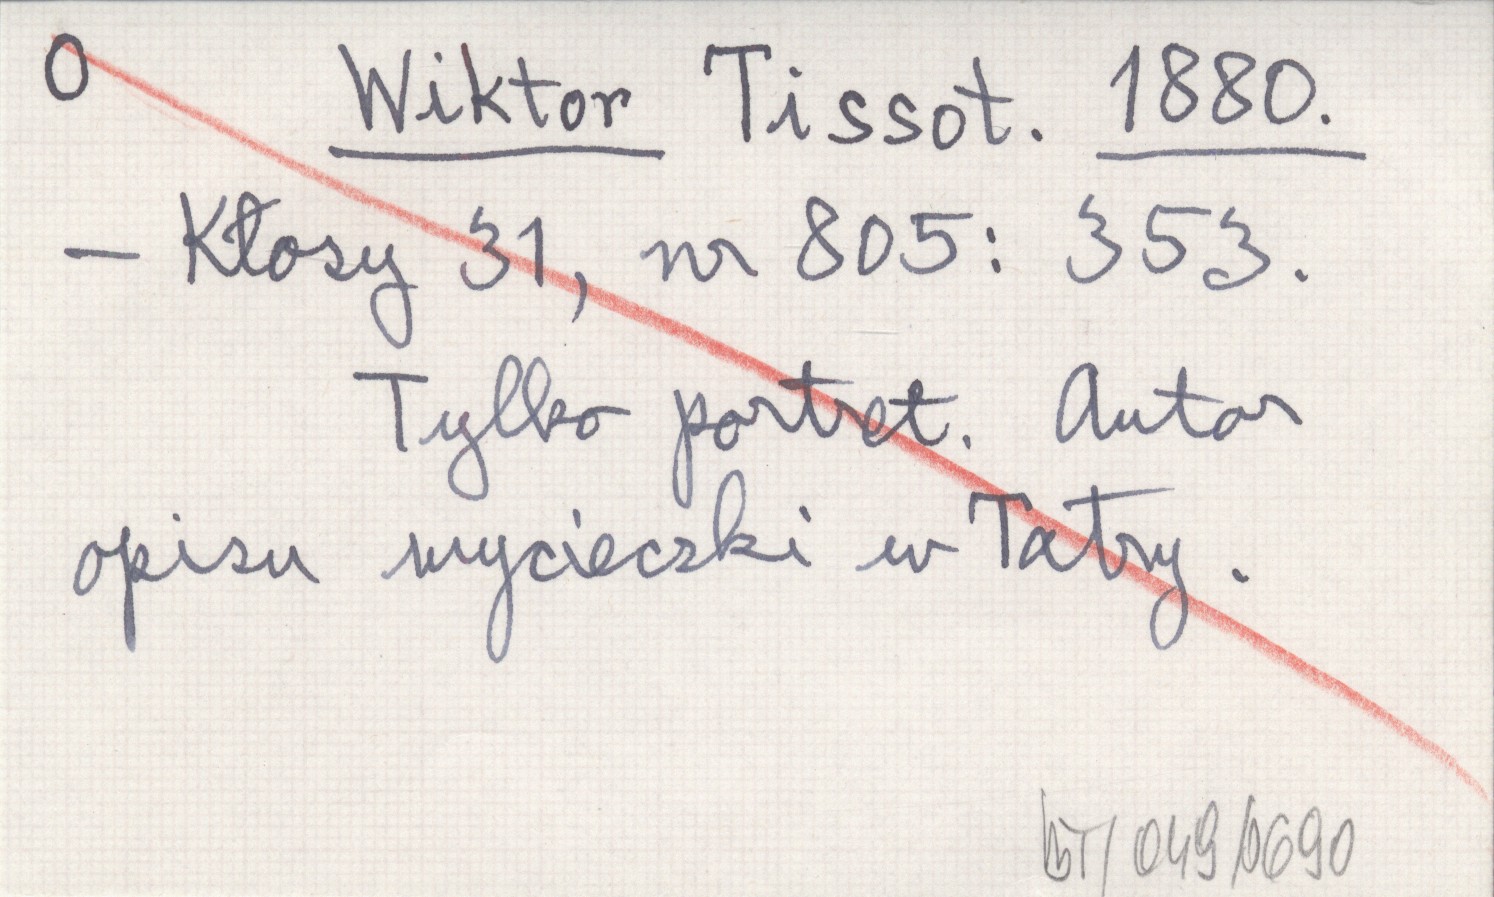 O Wiktor Tissot. 1880.
— Kłosy 31, nr 805: 353.
Tylko portret. Autor
opisu wycieczki w Tatry.
BT/049/0690